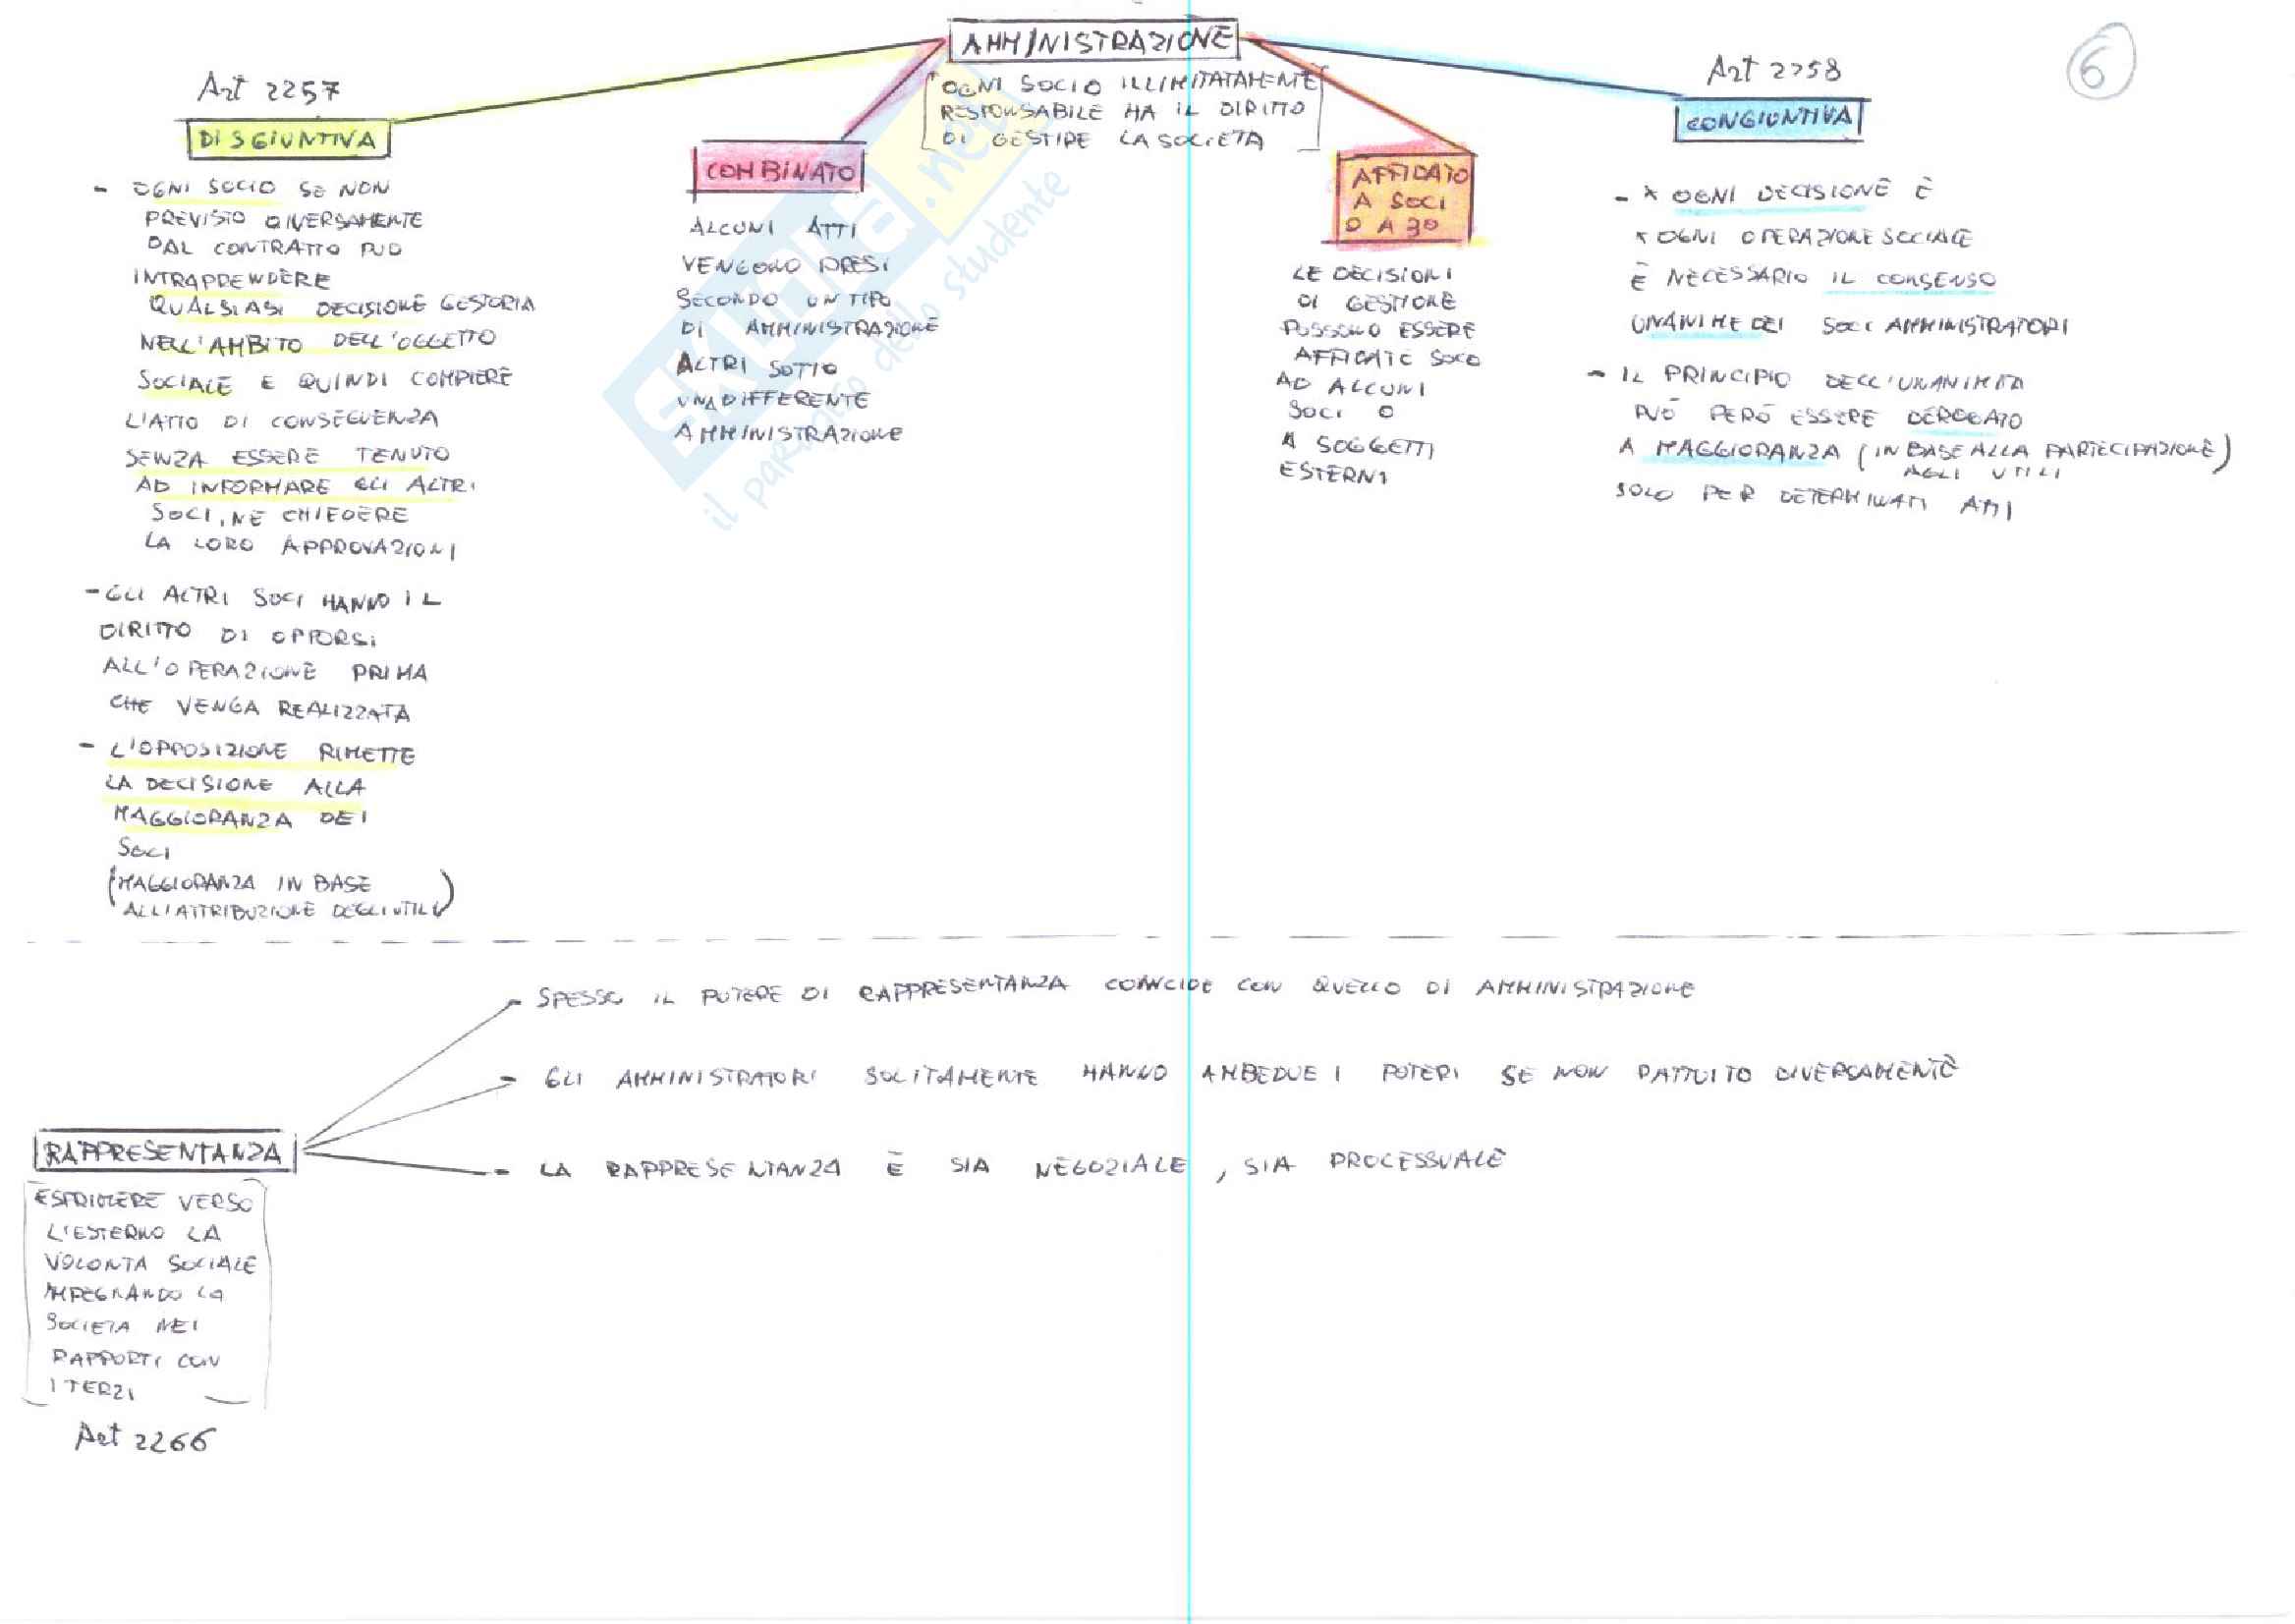 AMMINISTRAZIONE
OGNI SOCIO ILLIMITATAMENTE
RESPONSABILE HA IL DIRITTO
DI GESTIRE LA SOCIETA
6
Art 2257
DISGIUNTIVA
- OGNI SOCIO SE NON
PREVISTO DIVERSAMENTE
DAL CONTRATTO PUO
INTRAPRENDERE
QUALSIASI DECISIONE GESTORIA
NELL'AMBITO DELL'OGGETTO
SOCIALE E QUINDI COMPIERE
L'ATTO DI CONSEGUENZA
SENZA ESSERE TENUTO
AD INFORMARE GLI ALTRI
SOCI, NE CHIEDERE
LA LORO APPROVAZIONI
- GLI ALTRI SOCI HANNO IL
DIRITTO DI OPPORSI
ALL'OPERAZIONE PRIMA
CHE VENGA REALIZZATA
- L'OPPOSIZIONE RIMETTE
LA DECISIONE ALLA
MAGGIORANZA DEI
SOCI
(MAGGIORANZA IN BASE
ALL'ATTRIBUZIONE DEGLI UTILI)
COMBINATO
ALCUNI ATTI
VENGONO PRESI
SECONDO UN TIPO
DI AMMINISTRAZIONE
ALTRI SOTTO
UNA DIFFERENTE
AMMINISTRAZIONE
SKUOLA.net
il paradiso dello studente
AFFIDATO
A SOCI
O A 3°
LE DECISIONI
DI GESTIONE
POSSONO ESSERE
AFFIDATE SOLO
AD ALCUNI
SOCI O
A SOGGETTI
ESTERNI
Art 2258
CONGIUNTIVA
- * OGNI DECISIONE È
* OGNI OPERAZIONE SOCIALE
È NECESSARIO IL CONSENSO
UNANIME DEI SOCI AMMINISTRATORI
- IL PRINCIPIO DELL'UNANIMITA
PUÒ PERÒ ESSERE DEROGATO
A MAGGIORANZA (IN BASE ALLA PARTECIPAZIONE)
AGLI UTILI
SOLO PER DETERMINATI ATTI
- SPESSO IL POTERE DI RAPPRESENTANZA COINCIDE CON QUELLO DI AMMINISTRAZIONE
- GLI AMMINISTRATORI SOLITAMENTE HANNO AMBEDUE I POTERI SE NON PATTUITO DIVERSAMENTE
- LA RAPPRESENTANZA È SIA NEGOZIALE, SIA PROCESSUALE
RAPPRESENTANZA
ESPRIMERE VERSO
L'ESTERNO LA
VOLONTA SOCIALE
IMPEGNANDO LA
SOCIETA NEI
RAPPORTI CON
I TERZI
Art 2266